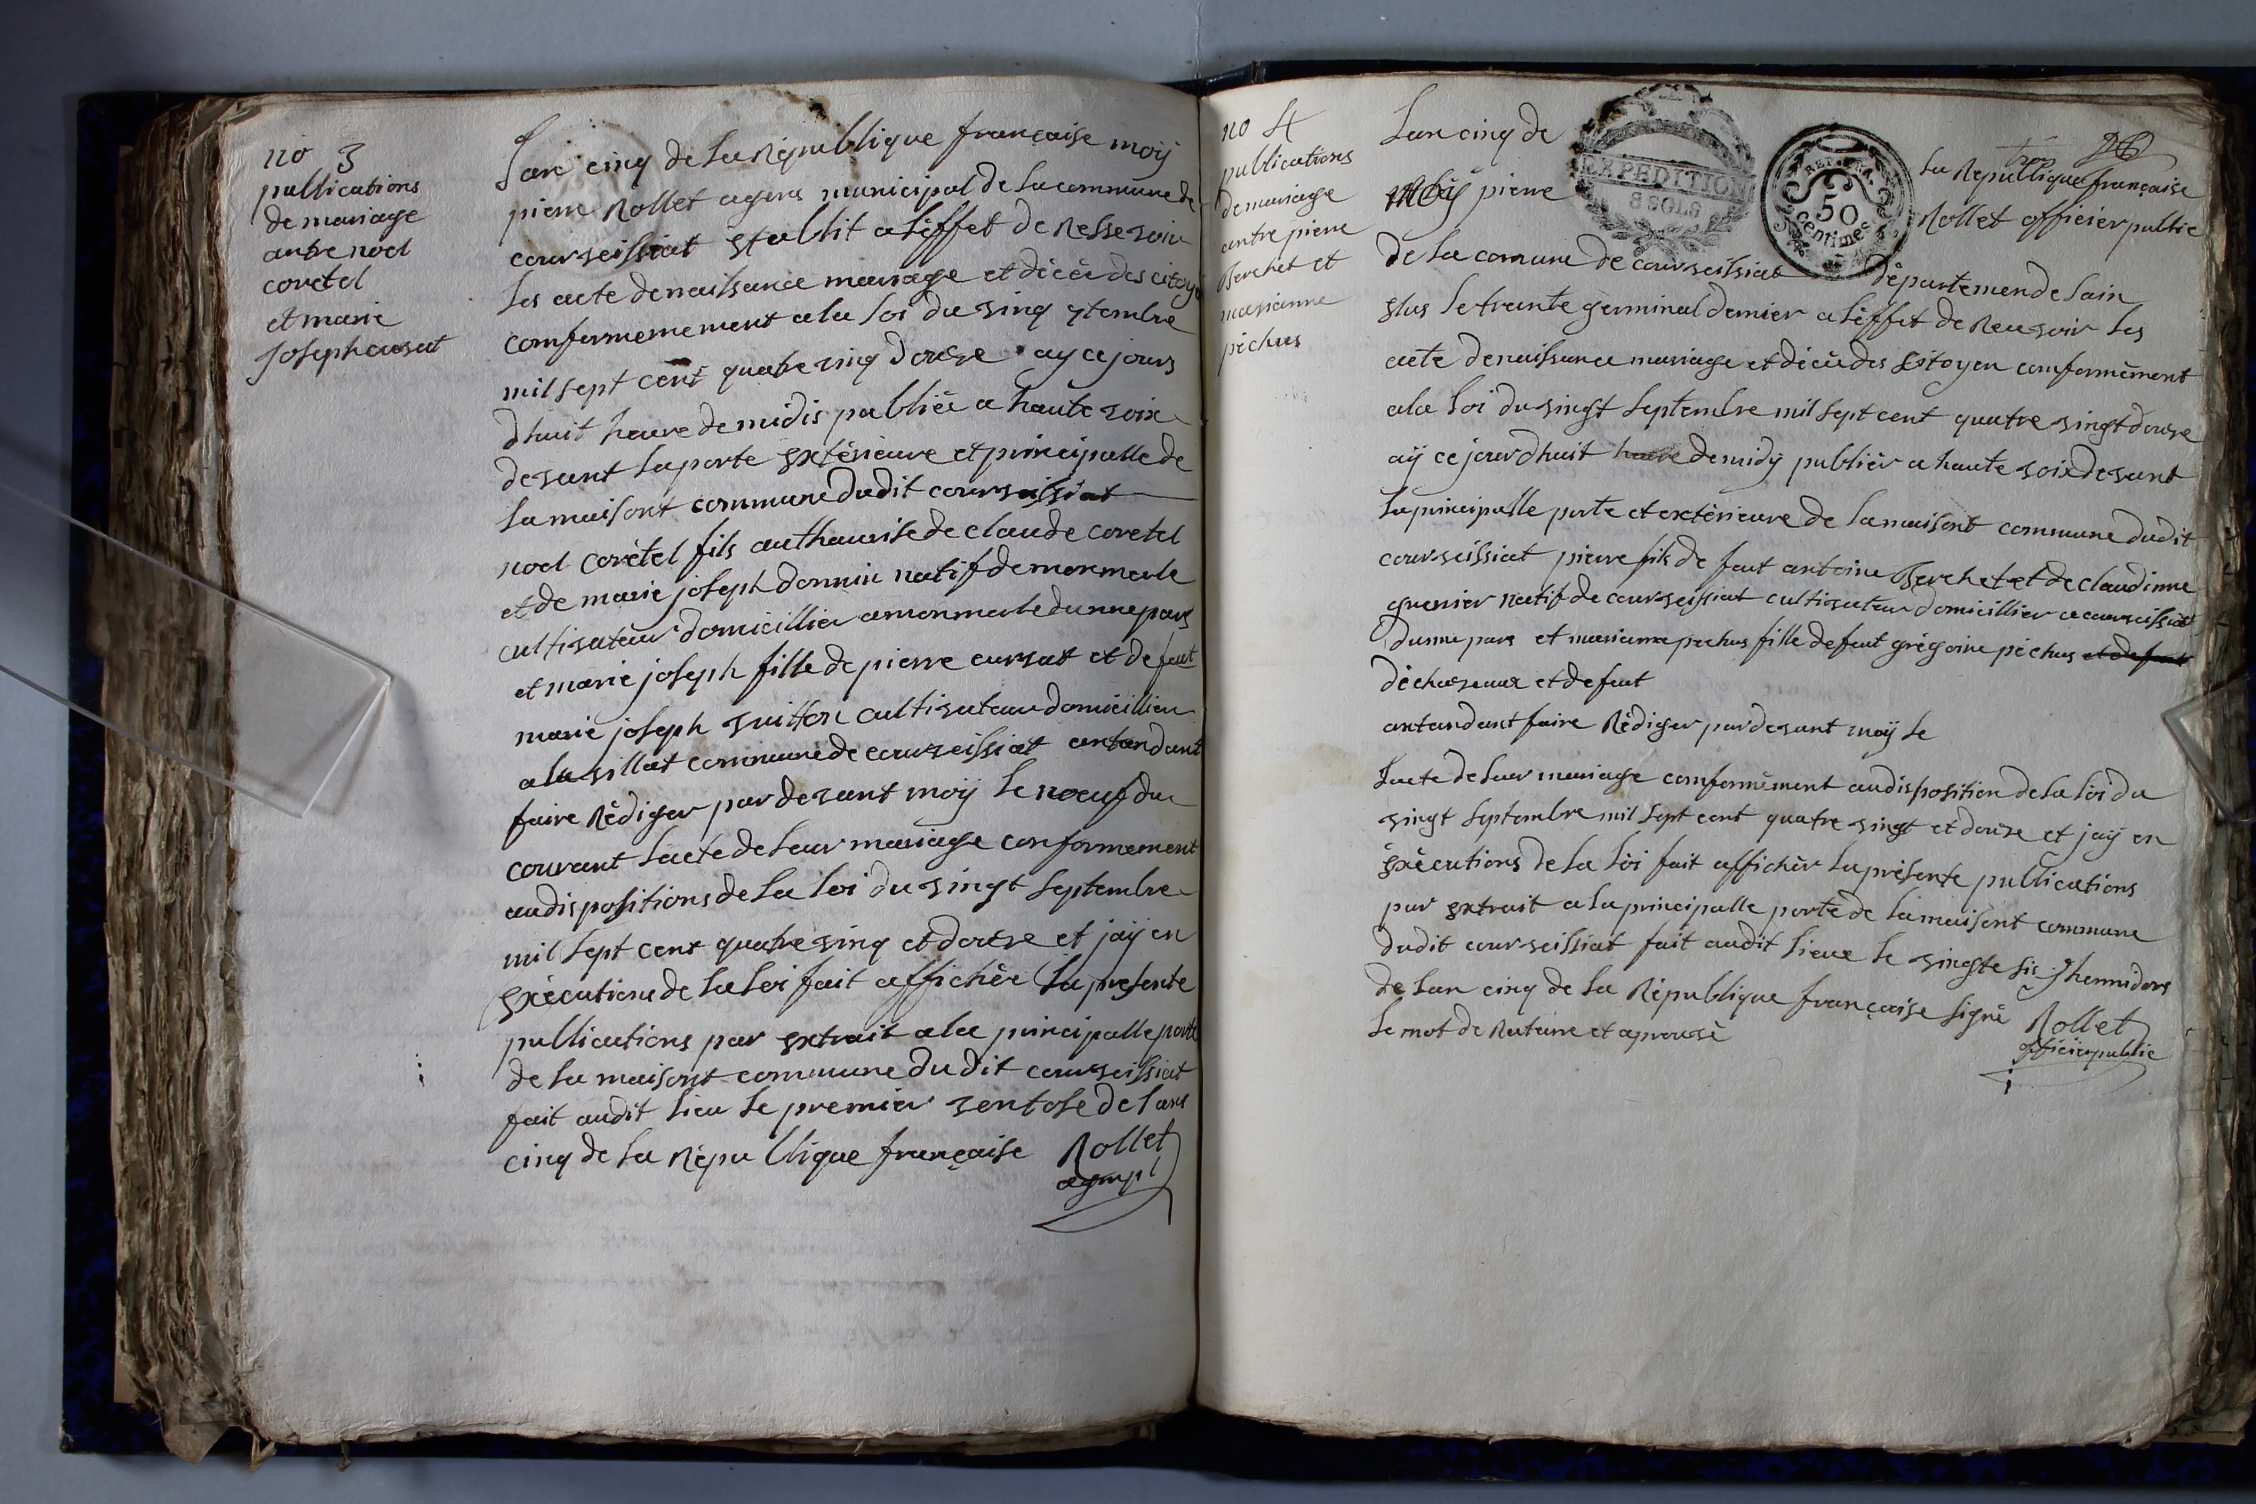 no 3
publications
de mariage
antre noel
coretel
et marie
joseph cursat
Lan cinq de la Republique française moÿ
pierre Rollet agens municipal de la commune de
courseissiat Etablit a leffet de Resevoir
les acte de naissance mariage et décée des citoye
comfermemement a la loi du vinq 7tembre
mil sept cent quatre vinq douze ay ce jours
dhuit heure de midis publiée a haute voix
devant la porte Extérieure et principalle de
la maisont commune dudit courseissiat
noel corètel fils authaurise de claude coretel
et de marie joseph donnin natif de marmerle
cultivateur domicillier a marmerle dunne pars
et marie joseph fille de pierre cursat et de feut
marie joseph vuitton cultivateur domicillier
a la villat commune de courseissiat antandant
faire Rèdiger par devant moÿ le noeuf du
courant lacte de leur mariage conformement
audispositions de la loi du vingt septembre
mil sept cent quatre vinq et douze et jaÿ en
Exècutions de la loi fait affichèr la presente
publications par Extrait a la principalle porte
de la maisont commune du dit courseissiat
fait audit lieu le premier ventose de lans
cinq de la Rèpublique française Rollet
agmpl
no 4
publications
de mariage
antre pierre
Berchet et
marianne
pèchus
EXPEDITION
8 SOLS
REP. FRA.
50
Centimes
Lan cinq de la Republique française
moÿ pierre Rollet officier public
de la comune de courseissiat départemen de lain
Elus le trante germinal dernier a lèffet de Resevoir les
acte de naissance mariage et décée des Citoyen comformèment
a la loi du vingt septembre mil sept cent quatre vingt douze
aÿ ce jourdhuit heure de midÿ publièr a haute voix devant
la principalle porte et extèrieure de la maisont commune dudit
courseissiat pierre fils de feut antoine Berchet et de claudinne
grenier natif de courseissiat cultivateur domicillier a courseissiat
dunne pars et marianne pechus fille de feut grègoire pèchus et de feut
dècharveux et de feut
antandant faire Rèdiger par devant moÿ le
lacte de leur mariage comformèment audisposition de la loi du
vingt septembre mil sept cent quatre vingt et douze et jaÿ en
Exècutions de la loi fait affichèr la prèsente publications
par Extrait a la principalle porte de la maisont commune
dudit courseissiat fait audit lieux le vingte sis thermidors
de lan cinq de la Rèpublique française signé Rollet
le mot de Rature et aprouvè officier public